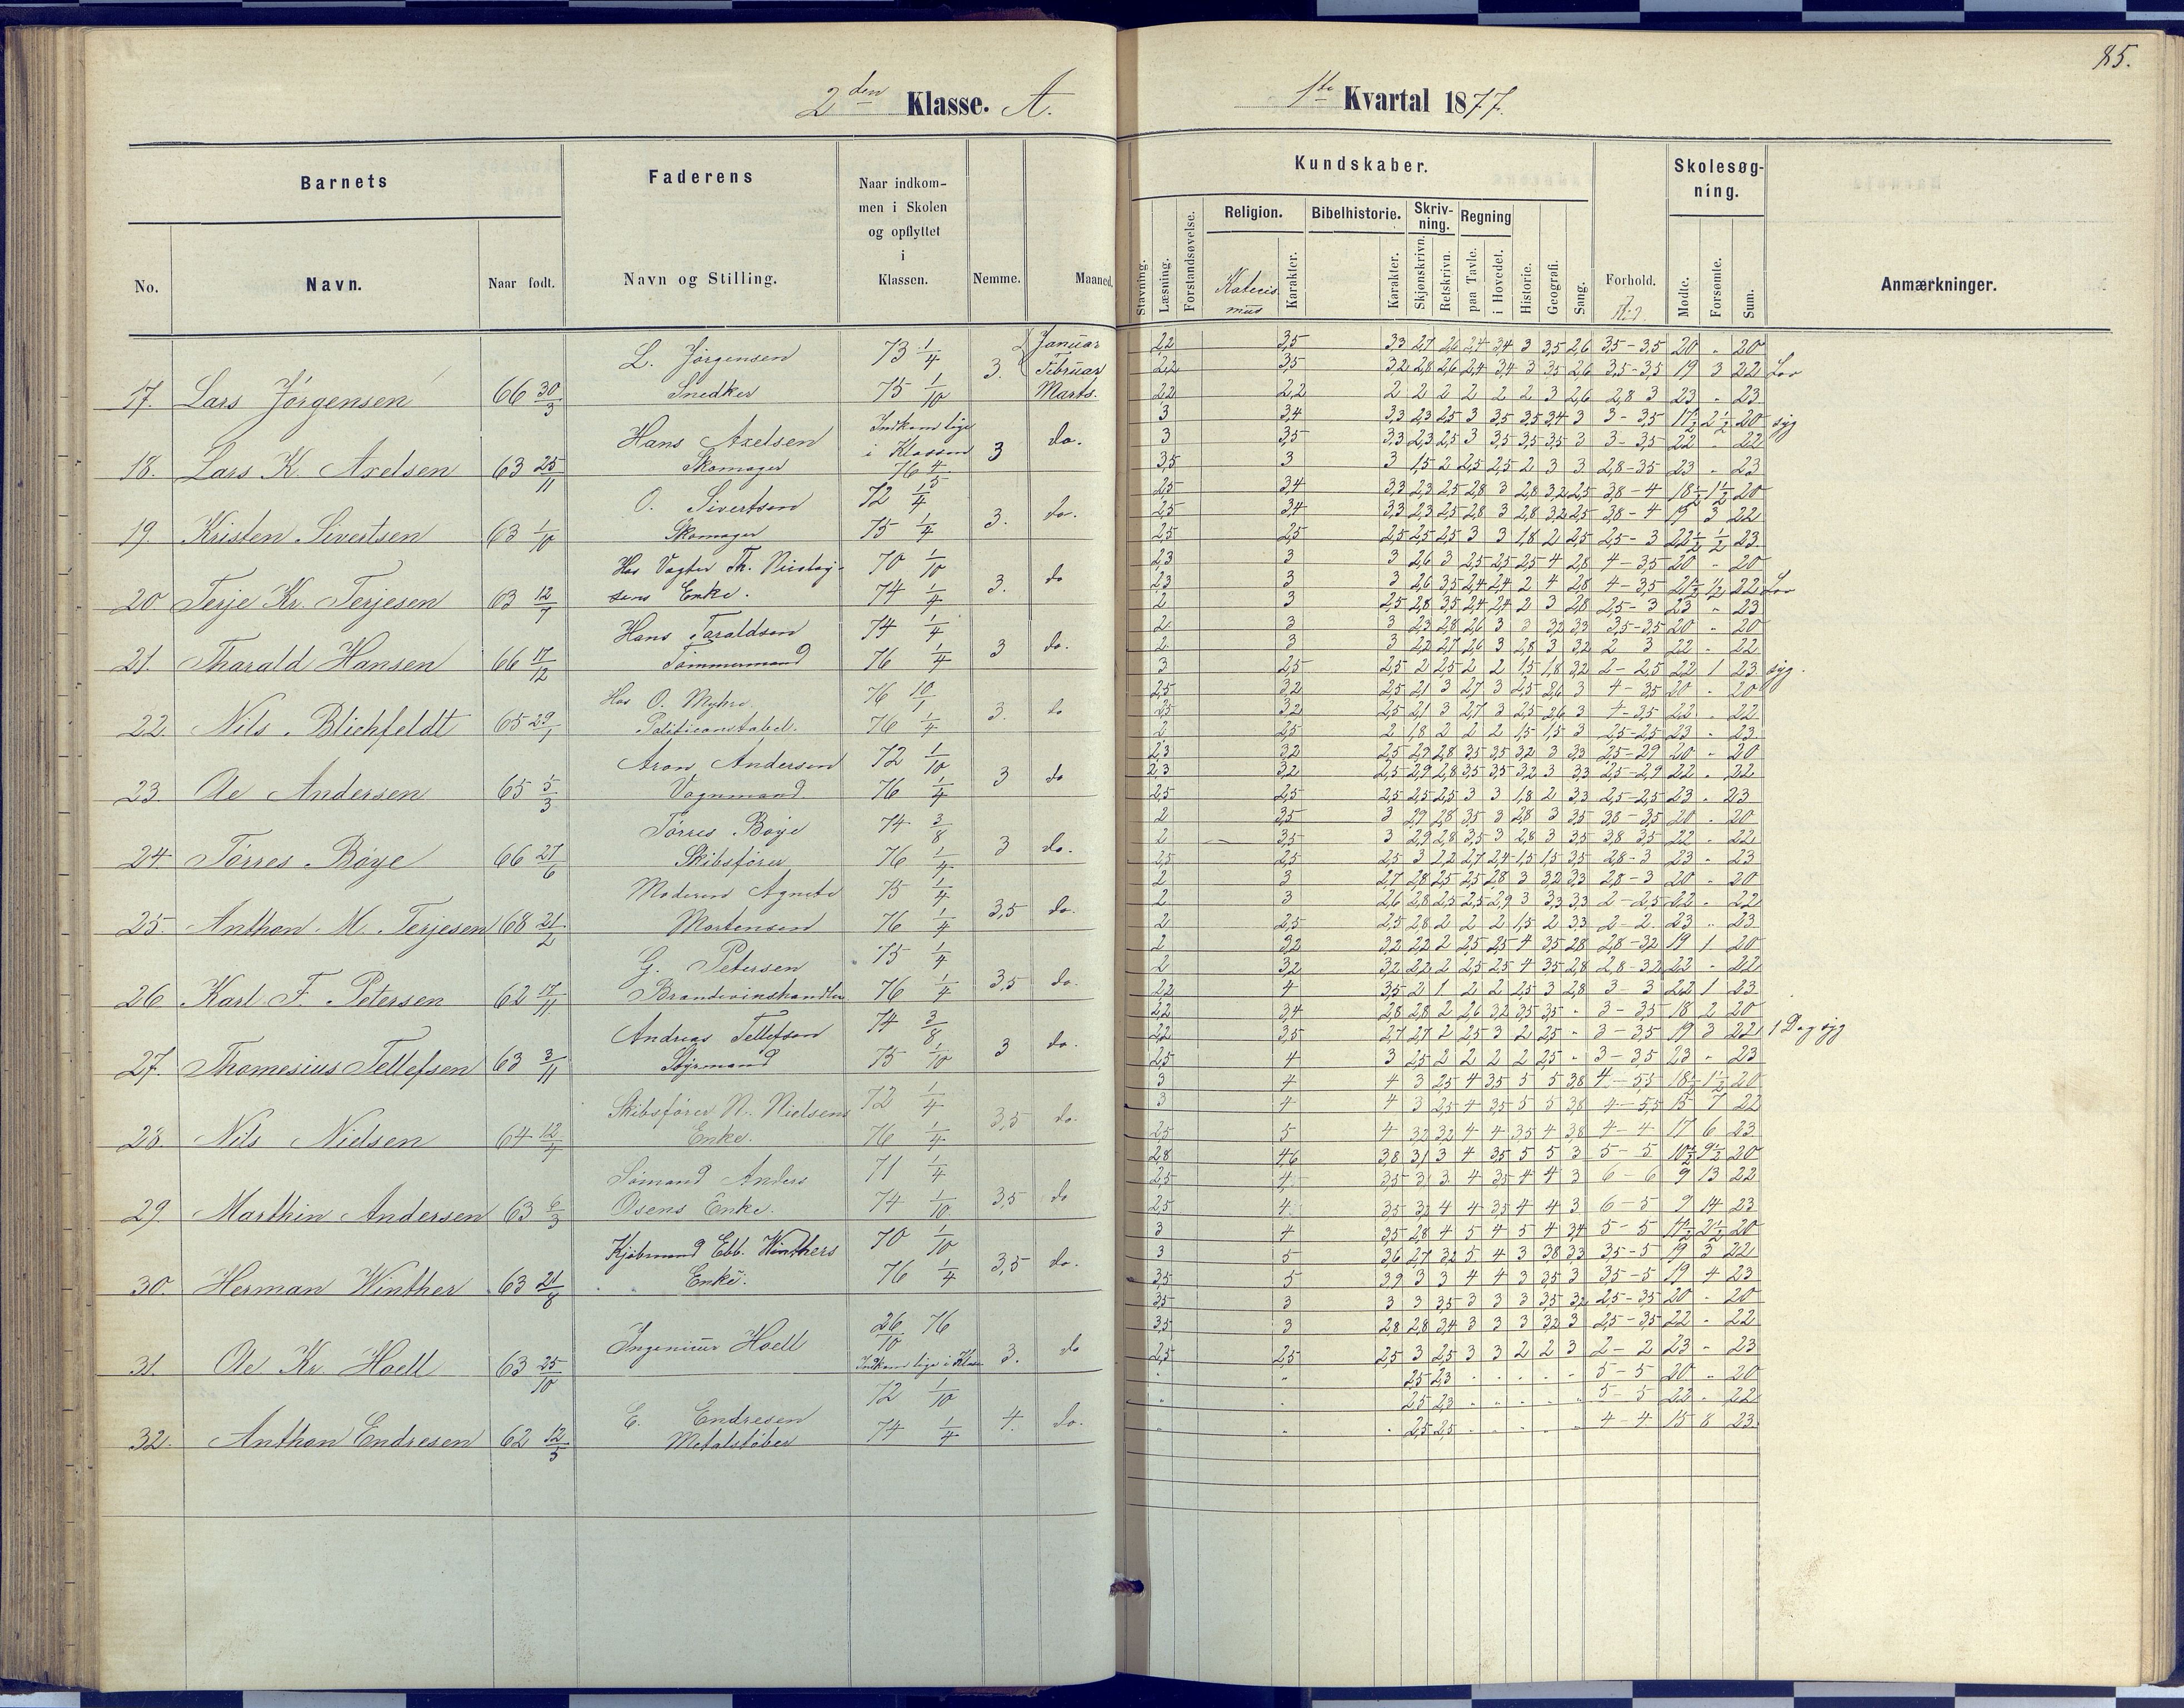 85.
2den Klasse. A.
1ste Kvartal 1877.
Barnets
Faderens
Naar indkommen i Skolen og opflyttet i Klassen.
Nemme.
Maaned.
No.
Navn.
Naar født.
Navn og Stilling.
Kundskaber.
Skolesøgning.
Stavning.
Læsning.
Forstandsøvelse.
Religion.
Katecismus
Karakter.
Bibelhistorie.
Karakter.
Skrivning.
Skjønskrivn.
Retskrivn.
Regning
paa Tavle.
i Hovedet.
Historie.
Geografi.
Sang.
Forhold.
Flid.
Mødte.
Forsømte.
Sum.
Anmærkninger.
17. Lars Jörgensen 66 30/3 L. Jörgensen Snedker 73 1/4 75 1/10 3. Januar Februar Marts.
2,2 3,5 3,3 2,7 2,6 2,4 3,4 3 3,5 2,6 3,5-3,5 20 " 20
2,2 3,5 3,2 2,8 2,6 2,4 3,4 3 3,5 2,6 3,5-3,5 19 3 22 Lov
2,2 2,2 2 2 2 2 2 2 3 2,6 2,8 3 23 " 23
18. Lars K. Axelsen 63 25/11 Hans Axelsen Skomager Indkom lige i Klassen 76 4/5 3 do.
3 3,4 3,3 2,3 2,5 3 3,5 3,5 3,4 3 3-3,5 17½ 2½ 20 syg
3 3,5 3,3 2,3 2,5 3 3,5 3,5 3,5 3 3-3,5 22 " 22
3,5 3 3 1,5 2 2,5 2,5 2 3 3 2,8-3,5 23 " 23
19. Kristen Sivertsen 63 1/10 O. Sivertsen Skomager 72 1/4 75 1/4 3. do.
2,5 3,4 3,3 2,3 2,5 2,8 3 2,8 3,2 2,5 3,8-4 18½ 1½ 20
2,5 3,4 3,3 2,3 2,5 2,8 3 2,8 3,2 2,5 3,8-4 19 3 22
2,5 2,5 2,5 2,5 2,5 3 3 1,8 2 2,5 2,5-3 22½ ½ 23
20 Terje Kr. Terjesen 63 12/7 Hos Vagter Th. Enke. 70 1/10 74 1/4 3. do
2,3 3 3 2,6 3 2,5 2,5 2,5 4 2,8 4-3,5 20 " 20
2,3 3 3 2,6 3,5 2,4 2,4 2 4 2,8 4-3,5 21½ ½ 22 Lov
2 3 2,5 2,8 3,5 2,4 2,4 2 3 2,8 2,5-3 23 " 23
21. Tharald Hansen 66 17/12 Hans Taraldsen Tömmermand 74 1/4 76 1/4 3 do.
2 3 3 2,3 2,8 2,6 3 3 3,2 3,3 3,5-3,5 20 " 20
2 3 3 2,2 2,7 2,6 3 2,8 3 3,2 2 3 22 " 22
3 2,5 2,5 2 2,5 2 2 1,5 1,8 3,2 2-2,5 22 1 23 syg.
22. Nils Blichfeldt 65 29/1 Hos O. Myhre Politiconstabel. 76 10/1 76 1/4 3. do
2,5 3,2 2,5 2,1 3 2,7 3 2,5 2,6 3 4-3,5 20 " 20
2,5 3,2 2,5 2,1 3 2,7 3 2,5 2,6 3 4-3,5 22 " 22
2 2,5 2 1,8 2 2 2 1,5 1,5 3 2,5-2,5 23 " 23
23. Ole Andersen 65 5/3 Aron Andersen Vognmand 72 1/10 76 1/4 3 do
2,3 3,2 2,5 2,9 2,8 3,5 3,5 3,2 3 3,3 2,5-2,9 20 " 20
2,3 3,2 2,5 2,9 2,8 3,5 3,5 3,2 3 3,3 2,5-2,9 22 " 22
2,5 2,5 2,5 2,5 2,5 3 3 1,8 2 3,3 2,5-2,5 23 " 23
24. Törres Böye 66 27/6 Törres Böye Skibsförer 74 3/8 76 1/4 3 do.
2 3,5 3 2,9 2,8 3,5 3 2,8 3 3,5 3,8-3,5 20 " 20
2 3,5 3 2,9 2,8 3,5 3 2,8 3 3,5 3,8 3,5 22 " 22
2,5 2,5 2,5 3 2,2 2,7 2,4 1,5 1,5 3,5 2,8-3 23 " 23
25. Anthon M. Terjesen 68 21/2 Moderen Agnete Mortensen 75 1/4 76 1/4 3,5 do.
2 3 2,7 2,8 2,5 2,5 2,8 3 3,2 3,3 2,8-3 20 " 20
2 3 2,6 2,8 2,5 2,5 2,9 3 3,3 3,3 2-2,5 22 " 22
2 2,5 2,5 2,8 2 2 2 1,5 2 3,3 2-2 23 " 23
26. Karl F. Petersen 62 17/11 G. Petersen Brændevinshandler 75 1/4 76 1/4 3,5 do.
2 3,2 3,2 2,2 2 2,5 2,5 4 3,5 2,8 2,8-3,2 19 1 20
2 3,2 3,2 2,2 2 2,5 2,5 4 3,5 2,8 2,8-3,2 22 " 22
2,2 4 3,5 2 1 2 2 2,5 3 2,8 3-3 22 1 23
27. Thomesius Tellefsen 63 3/11 Andreas Tellefsen Styrmand 74 3/8 75 1/10 3 do.
2,2 3,4 2,8 2,8 2 2,6 3,2 3,5 3,5 " 3-3,5 18 2 20
2,2 3,5 2,7 2,7 2 2,5 3 2 2,5 " 3-3,5 19 3 22 1 Dag syg
2,5 4 3 2,5 2 2 2 2 2,5 " 3-3,5 23 " 23
28. Nils Nielsen 64 12/4 Skibsförer N. Nielsens Enke. 72 1/4 76 1/4 3,5 do.
3 4 4 3 2,5 4 3,5 5 5 3,8 4-5,5 18½ 1½ 20
3 4 4 3 2,5 4 3,5 5 5 3,8 4-5,5 15 7 22
2,5 5 4 3,2 3,2 4 4 3,5 4 3,8 4-4 17 6 23
29. Marthin Andersen 63 6/3 Sömand Anders Osens Enke. 71 1/4 74 1/10 3,5 do
2,8 4,6 3,8 3,1 3 4 3,5 5 5 3 5-5 10½ 9½ 20
2,5 4 3,5 3 3 4 3,5 4 4 3 6-6 9 13 22
2,5 4 3,5 3,2 4 4 3,5 4 4 3 6-5 9 14 23
30. Herman Winther 63 21/8 Kjöbmand Ebb. Winthers Enke. 70 1/10 76 1/4 3,5 do.
3 4 3,5 2,8 4 5 4 5 4 3,4 5-5 17½ 2½ 20
3 5 3,6 2,7 3,2 5 4 3 3,8 3,3 3,5-5 19 3 22
3,5 5 3,9 3 3 4 4 3 3,5 3 3,5-5 19 4 23
31. Ole Kr. Hoell 63 25/10 Ingeniör Hoell 26/10 76 Indkom lige i Klas 3. do
3,5 3 3 3 3,5 3 3 3 3,5 3,2 2,5-3,5 20 " 20
3,5 3 2,8 2,8 3,4 3 3 3 3,2 3 2,5-3,5 22 " 22
2,5 2,5 2,5 3 2,5 3 3 2 2 3 2-2 23 " 23
32. Anthon Endresen 62 12/5 E. Endresen Metalstöber 72 1/10 74 1/4 4. do.
" " 2,5 2,3 " " " " " 5-5 20 " 20
" " 2,5 2,3 " " " " " 5-5 22 " 22
" " " 2,5 2,5 " " " " " 4-4 15 8 23